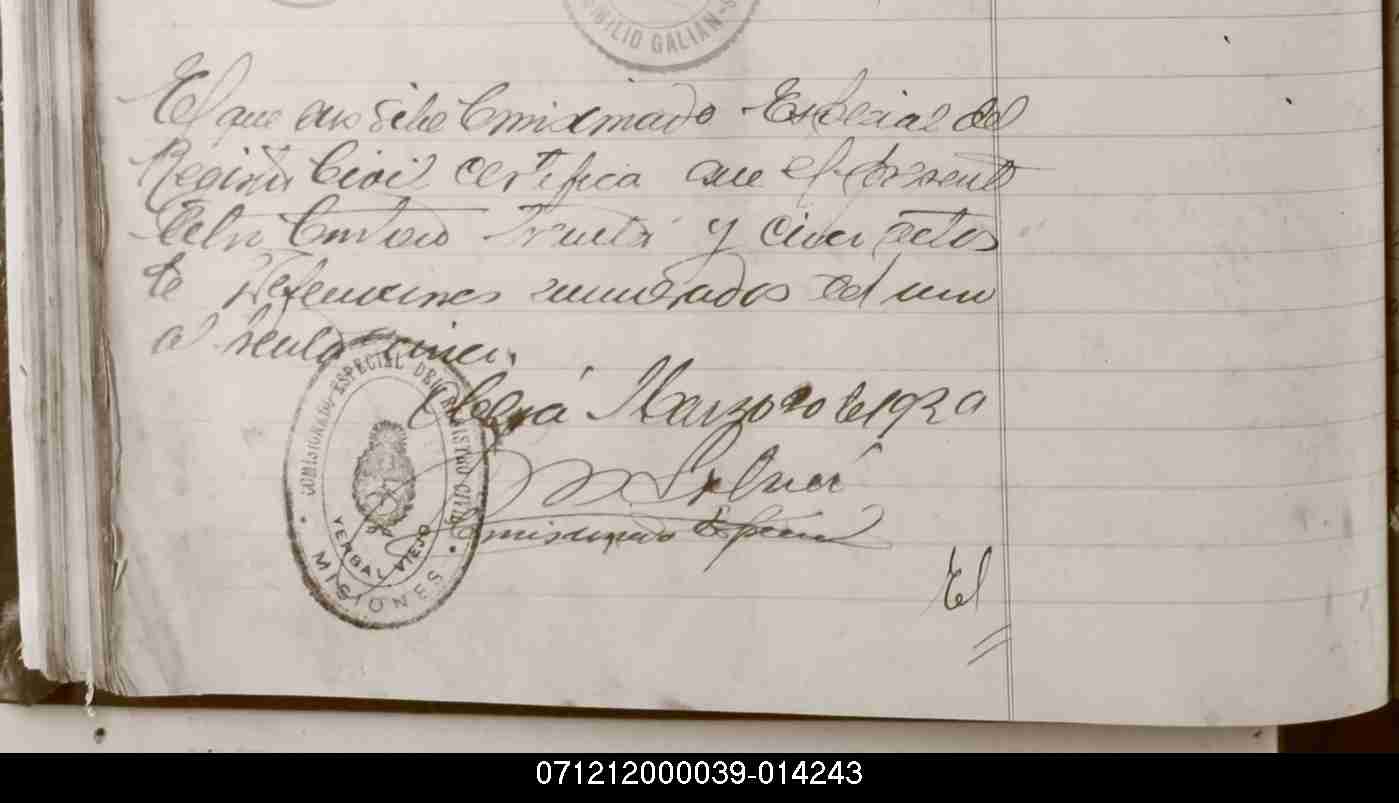 EMILIO GALIAN
El que suscribe Comisionado Especial del
Registro Civil certifica que el presente
Libro Contiene treinta y cinco actas
de Defunciones numeradas del uno
al treinta cinco.
Oberá Marzo 20 de 1929
Comisionado Especial
COMISIONADO ESPECIAL DEL REGISTRO CIVIL
YERBAL VIEJO
MISIONES
El
071212000039-014243